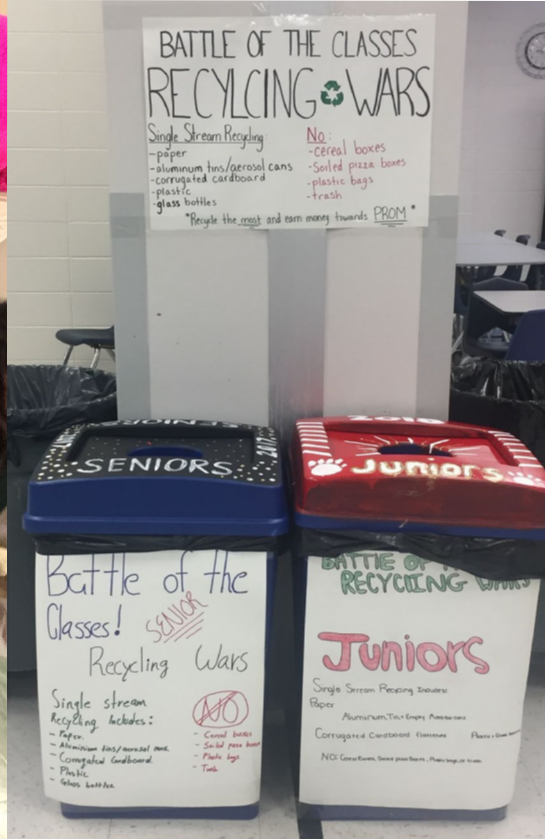 BATTLE OF THE CLASSES
RECYLCING WARS
Single Stream Recycling:
-paper
-aluminum tins/aerosol cans
-corrugated cardboard
-plastic
-glass bottles
No:
-cereal boxes
-Soiled pizza boxes
-plastic bags
-trash
*Recycle the most and earn money towards PROM*
SENIORS
2017
SENIORS
Juniors
Battle of the
Classes!
SENIOR
Recycling Wars
Single stream
Recycling Includes:
- Paper
- Aluminium tins/aerosol cans
- Corrugated Cardboard
- Plastic
- Glass bottles
NO
- Cereal boxes
- Soiled pizza boxes
- Plastic bags
- Trash
BATTLE OF
RECYCLING WARS
Juniors
Single Stream Recycling Includes:
Paper
Aluminum Tins Empty
Corrugated Cardboard
NO: Cereal Boxes, Soiled pizza Boxes, Plastic bags, or trash